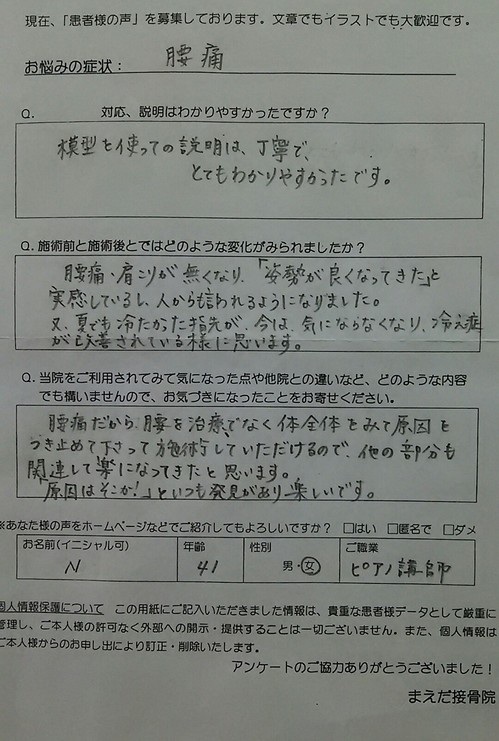 現在、「患者様の声」を募集しております。文章でもイラストでも大歓迎です。
お悩みの症状： 腰痛
Q. 対応、説明はわかりやすかったですか？
模型を使っての説明は、丁寧で、
とてもわかりやすかったです。
Q. 施術前と施術後とではどのような変化がみられましたか？
腰痛・肩こりが無くなり、「姿勢が良くなってきた」と
実感しているし、人からも言われるようになりました。
又、夏でも冷たかった指先が、今は、気にならなくなり、冷え症
が改善されている様に思います。
Q. 当院をご利用されてみて気になった点や他院との違いなど、どのような内容
でも構いませんので、お気づきになったことをお寄せください。
腰痛だから、腰を治療でなく体全体をみて原因を
つき止めて下さって施術していただけるので、他の部分も
関連して楽になってきたと思います。
「原因はそこか！」といつも発見があり楽しいです。
※あなた様の声をホームページなどでご紹介してもよろしいですか？ □はい □匿名で □ダメ
お名前(イニシャル可) 年齢 性別 ご職業
N 41 男・女 ピアノ講師
個人情報保護について この用紙にご記入いただきました情報は、貴重な患者様データとして厳重に
管理し、ご本人様の許可なく外部への開示・提供することは一切ございません。また、個人情報は
ご本人様からのお申し出により訂正・削除いたします。
アンケートのご協力ありがとうございました！
まえだ接骨院